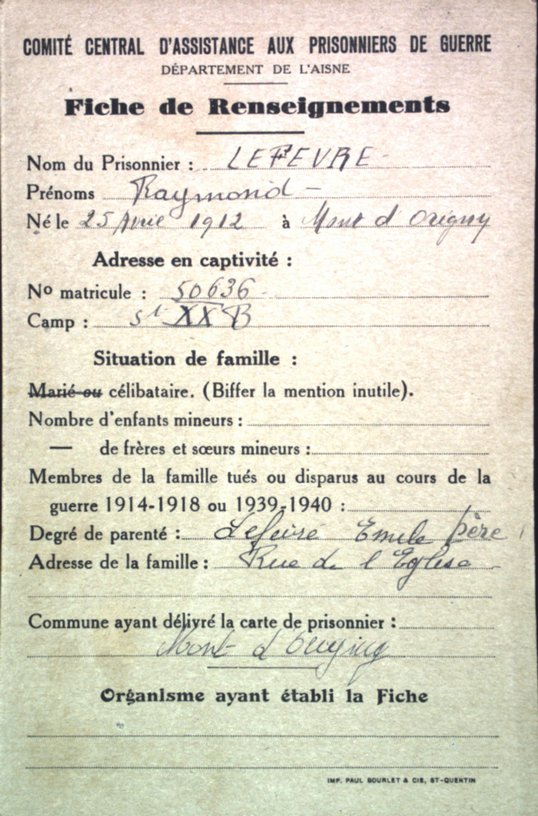 COMITÉ CENTRAL D'ASSISTANCE AUX PRISONNIERS DE GUERRE
DÉPARTEMENT DE L'AISNE
Fiche de Renseignements
Nom du Prisonnier : LEFEVRE
Prénoms Raymond
Né le 25 Avril 1912 à Mont d'Origny
Adresse en captivité :
No matricule : 50636
Camp : XX B
Situation de famille :
Marié ou célibataire. (Biffer la mention inutile).
Nombre d'enfants mineurs :
— de frères et sœurs mineurs :
Membres de la famille tués ou disparus au cours de la
guerre 1914-1918 ou 1939-1940 :
Degré de parenté : Lefevre Emile père
Adresse de la famille : Rue de l'Eglise
Commune ayant délivré la carte de prisonnier :
Mont d'Origny
Organisme ayant établi la Fiche
IMP. PAUL BOURLET & CIE, ST-QUENTIN